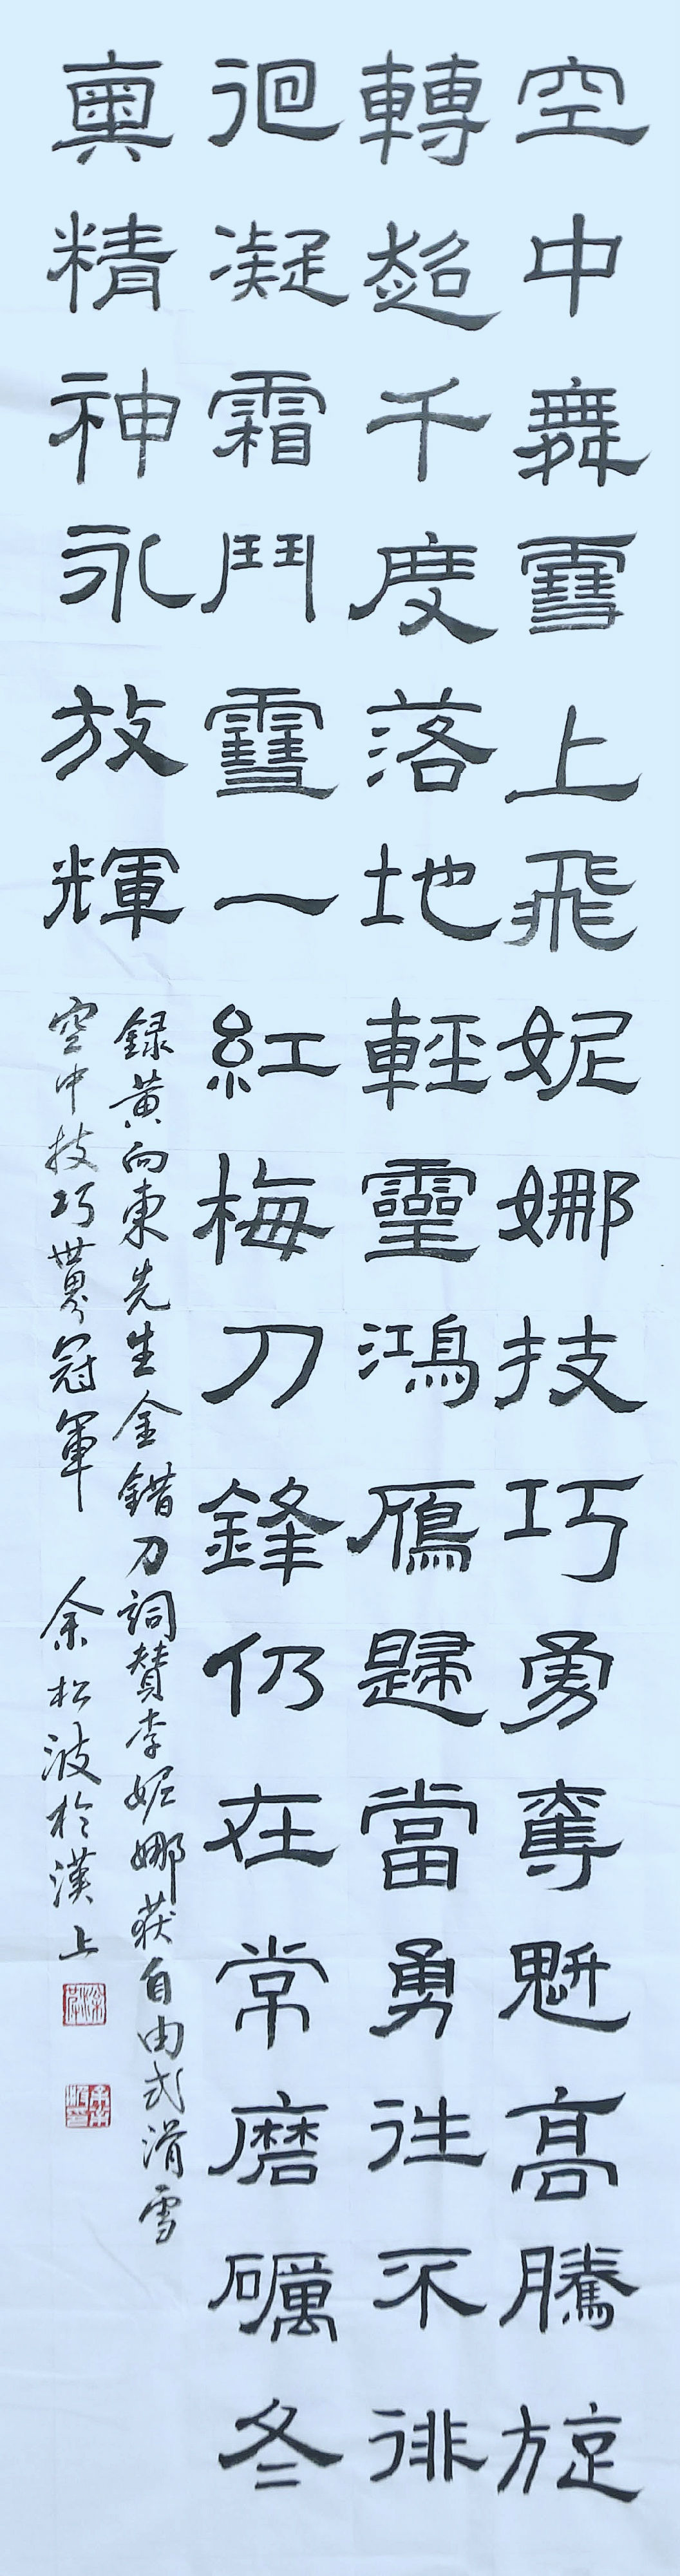 空中舞雪上飛妮娜技巧勇奪魁高騰旋
轉超千度落地輕靈鴻雁歸當勇往不徘
徊凝霜鬥雪一紅梅刀鋒仍在常磨礪冬
奧精神永放輝
録黃向東先生金錯刀詞贊李妮娜获自由式滑雪
空中技巧世界冠軍 余松波於漢上